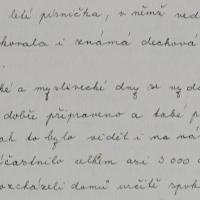 letě písnička, v němž ved
kovala i známá dechová
.
ké a myslivecké dny se vyda
dobře připraveno a také p
ak to bylo vidět i na ná
účastnilo celkem asi 3 000 d
rozcházeli domů určitě spok